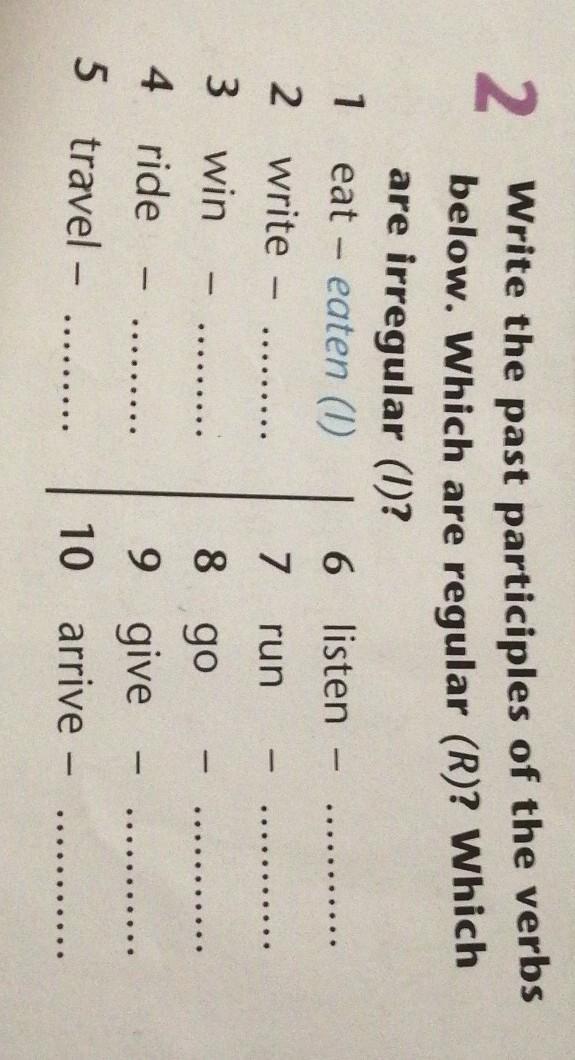 2 Write the past participles of the verbs
below. Which are regular (R)? Which
are irregular (I)?
1 eat – eaten (I)
2 write – .........
3 win – .........
4 ride – .........
5 travel – .........
6 listen – ...........
7 run – ...........
8 go – ...........
9 give – ...........
10 arrive – ...........